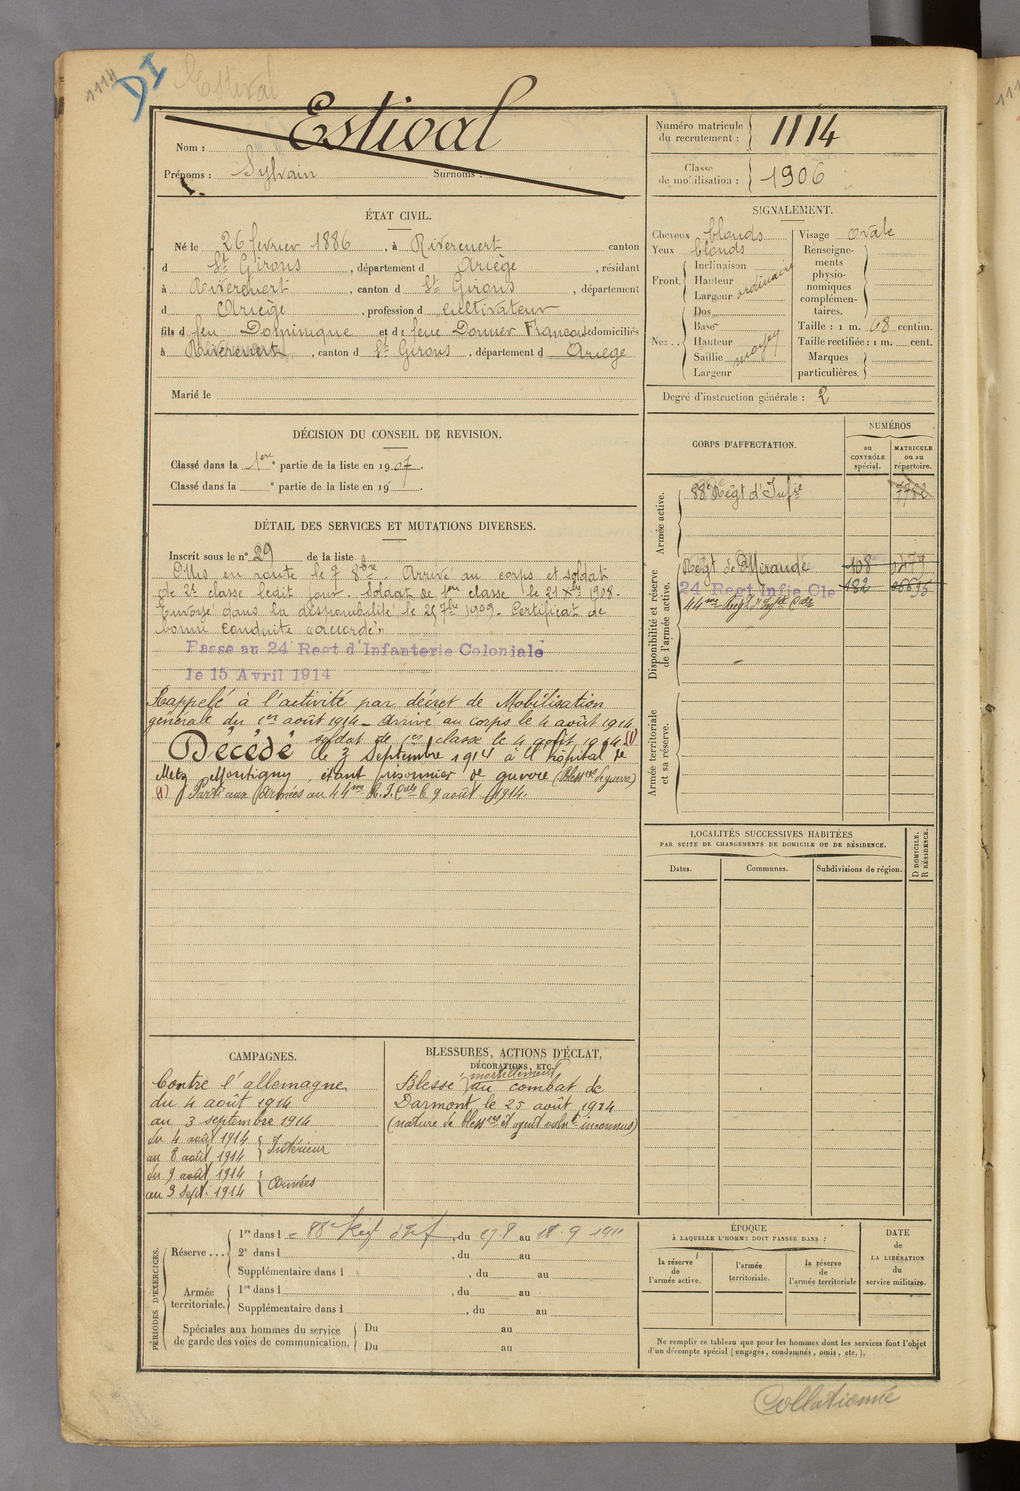 1114
DI
Estival
Nom : Estival
Prénoms : Sylvain Surnoms :
ÉTAT CIVIL.
Né le 26 fevrier 1886, à Rivérenert canton
d St Girons, département d Ariège, résidant
à Rivérenert, canton d St Girons, département
d Ariège, profession d cultivateur
fils d feu Dominique et de feue Dormer Françoise domiciliés
à Rivérenert, canton d St Girons, département d Ariège
Marié le
DÉCISION DU CONSEIL DE REVISION.
Classé dans la 1ère partie de la liste en 1907.
Classé dans la e partie de la liste en 19 .
DÉTAIL DES SERVICES ET MUTATIONS DIVERSES.
Inscrit sous le n° 29 de la liste.
Mis en route le 7 8bre. Arrivé au corps et soldat
de 2e classe ledit jour. Soldat de 1ère classe le 21 Xbre 1908.
Envoyé dans la disponibilité le 25 7bre 1909. Certificat de
bonne conduite "accordé".
Passé au 24e Regt d'Infanterie Coloniale
le 15 Avril 1914
Rappelé à l'activité par décret de Mobilisation
générale du 1er août 1914 - Arrivé au corps le 4 août 1914
soldat de 1ère classe le 4 août 1914 (1)
Décédé le 3 Septembre 1914 à l'hôpital de
Metz Montigny, étant prisonnier de guerre (Blessres de guerre)
(1) Parti aux Armées au 44me R.I.Cale le 9 août 1914.
CAMPAGNES.
Contre l'allemagne
du 4 août 1914
au 3 septembre 1914
du 4 août 1914
au 8 août 1914 } Intérieur
du 9 août 1914
au 3 Sept. 1914 } Armées
BLESSURES, ACTIONS D'ÉCLAT,
DÉCORATIONS, ETC.
mortellement
Blessé au combat de
Darmont le 25 août 1914
(nature de blessres et agent vulnt inconnus)
PÉRIODES D'EXERCICES.
Réserve... 1re dans le 88e Regt d'Inf, du 27.8 au 18.9 1911
2e dans l , du au
Supplémentaire dans l , du au
Armée territoriale. 1re dans l , du au
Supplémentaire dans l , du au
Spéciales aux hommes du service
de garde des voies de communication. Du au
Du au
Numéro matricule
du recrutement : 1114
Classe
de mobilisation : 1906
SIGNALEMENT.
Cheveux blonds
Yeux blonds
Front. Inclinaison
Hauteur
Largeur
ordinaire
Nez.. Dos
Base
Hauteur
Saillie
Largeur
moyen
Visage ovale
Renseigne-
ments
physio-
nomiques
complémen-
taires.
Taille : 1 m. 68 centim.
Taille rectifiée : 1 m. cent.
Marques
particulières.
Degré d'instruction générale : 2
CORPS D'AFFECTATION.
NUMÉROS
au
CONTRÔLE
spécial.
MATRICULE
ou au
répertoire.
Armée active.
88e Régt d'Infie 7782
Disponibilité et réserve
de l'armée active.
Régt de Mirande 108
24 Regt Infie Cle 182
44me Regt d'Infie Cale
Armée territoriale
et sa réserve.
LOCALITÉS SUCCESSIVES HABITÉES
PAR SUITE DE CHANGEMENTS DE DOMICILE OU DE RÉSIDENCE.
Dates.
Communes.
Subdivisions de région.
D DOMICILE.
R RÉSIDENCE.
ÉPOQUE
À LAQUELLE L'HOMME DOIT PASSER DANS :
la réserve
de
l'armée active.
l'armée
territoriale.
la réserve
de
l'armée territoriale
DATE
de
LA LIBÉRATION
du
service militaire.
Ne remplir ce tableau que pour les hommes dont les services font l'objet
d'un décompte spécial (engagés, condamnés, omis, etc.).
Collationné